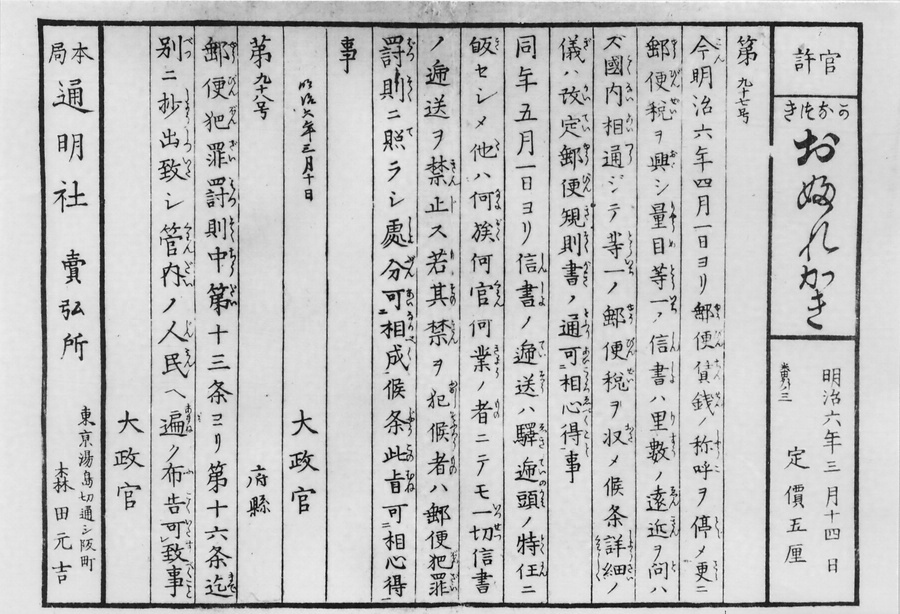 官許
かなつき
おふれかき
明治六年三月十四日
巻ノ三
定價五厘
第九十七号
今明治六年四月一日ヨリ郵便賃錢ノ称呼ヲ停メ更ニ
郵便税ヲ興シ量目等一ノ信書ハ里數ノ遠近ヲ問ハ
ズ國内相通ジテ等一ノ郵便税ヲ収メ候条詳細ノ
儀ハ改定郵便規則書ノ通可相心得事
同年五月一日ヨリ信書ノ遞送ハ驛遞頭ノ特任ニ
皈セシメ他ハ何族何官何業ノ者ニテモ一切信書
ノ遞送ヲ禁止ス若其禁ヲ犯候者ハ郵便犯罪
罸則ニ照ラシ處分可相成候条此旨可相心得
事
明治六年三月十日
大政官
第九十八号
府縣
郵便犯罪罸則中第十三条ヨリ第十六条迄
別ニ抄出致シ管内ノ人民ヘ遍ク布告可致事
大政官
本局
通明社
賣弘所
東京湯島切通シ阪町
森田元吉